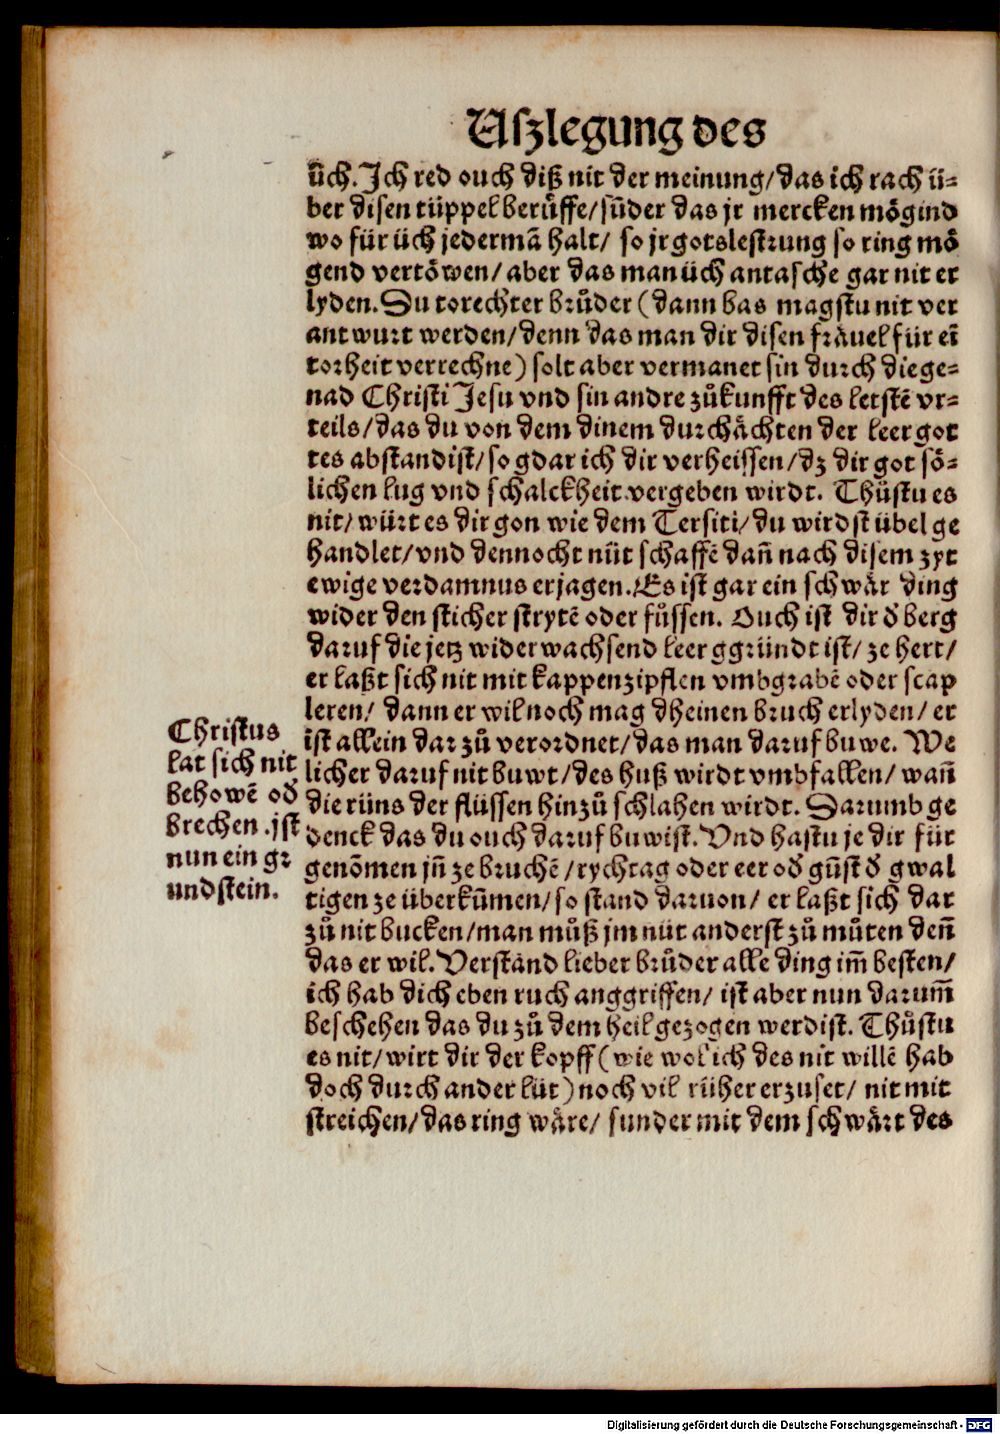 Uſzlegung des
uͤch. Ich red ouch diß nit der meinung/das ich rach uͤ⸗
ber diſen tuͤppel beruͤffe/ſūder das jr mercken moͤgind
wo für uͤch jedermā halt/ ſo jr gotsleſtrung ſo ring moͤ
gend vertoͤwen/aber das man uͤch antaſche gar nit er
lyden. Du torechter bruͦder (dann bas magſtu nit ver
antwurt werden/denn das man dir diſen fraͤuel für eī
torheit verrechne) ſolt aber vermanet ſin durch die ge⸗
nad Chriſti Jeſu vnd ſin andre zuͦkunfft des letſtē vr⸗
teils/das du von dem dinem durchaͤchten der leer got
tes abſtandiſt/ſo gdar ich dir verheiſſen/dz dir got ſoͤ⸗
lichen lug vnd ſchalckheit vergeben wirdt. Thuͦſtu es
nit/würt es dir gon wie dem Terſiti/du wirdſt übel ge
handlet/vnd dennocht nüt ſchaffē dañ nach diſem zyt
ewige verdamnus erjagen. Es iſt gar ein ſchwaͤr ding
wider den ſticher ſtrytē oder fuͤſſen. Ouch iſt dir ð berg
daruf die jetz widerwachſend leer ggründt iſt/ ze hert/
er laßt ſich nit mit kappenzipflen vmbgrabē oder ſcap
leren/ dann er wil noch mag dheinen bruch erlyden/ er
iſt allein dar zuͦ verordnet/das man daruf buwe. We
licher daruf nit buwt/des huß wirdt vmbfallen/ wañ
die rüns der flüſſen hinzuͦ ſchlahen wirdt. Darumb ge
denck das du ouch daruf buwiſt. Vnd haſtu je dir für
genōmen jñ ze bruchē /rychtag oder eer oð gūſt ð gwal
tigen ze überkūmen/ſo ſtand daruon/ er laßt ſich dar
zuͦ nit bucken/man muͦß jm nüt anderſt zuͦ muͦten deñ
das er wil. Verſtand lieber bruͦder alle ding im̄ beſten/
ich hab dich eben ruch anggriffen/ iſt aber nun darum̄
beſchehen das du zuͦ dem heil gezogen werdiſt. Thuͦſtu
es nit/wirt dir der kopff (wie wol ich des nit willē hab
doch durch ander lüt) noch vil rüher erzuſet/ nit mit
ſtreichen/das ring waͤre/ ſunder mit dem ſchwaͤrt des
Chriſtus
lat ſich nit
behowē oð
brechen .jſt
nun ein gr
undſtein.
Digitalisierung gefördert durch die Deutsche Forschungsgemeinschaft - DFG